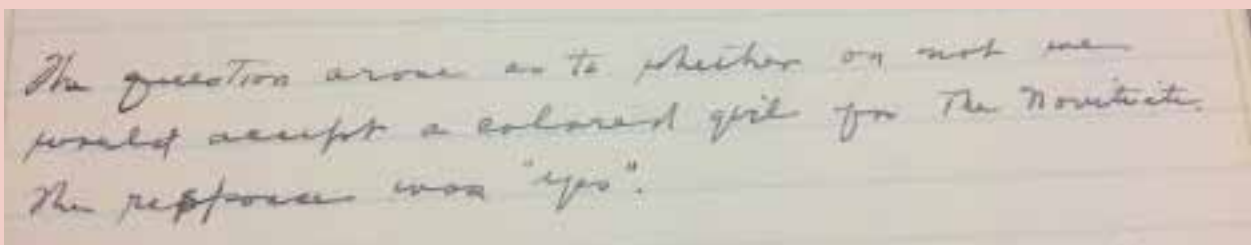 The question arose as to whether or not we
would accept a colored girl for the Novitiate.
The response was "yes".